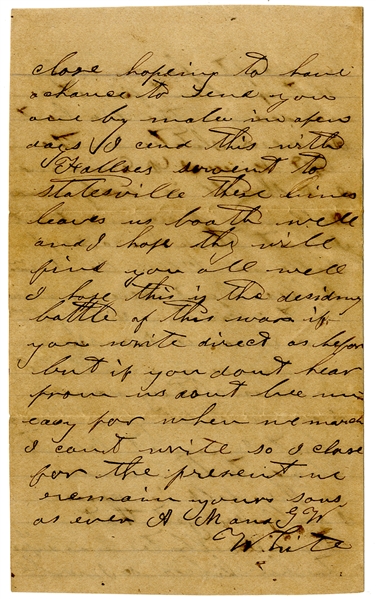 close hopeing to have
a chance to send you
one by male in a few
days I cend this with
Falls servent to
Statesville these lines
leaves us boath well
and I hope thy will
find you all well
I hope this is the desiding
battle of this war if
you write direct as before
but if you dont hear
from us dont bee un
easy for when we march
I cant write so I close
for the present we
remain yours sons
as ever A Mans G W
White